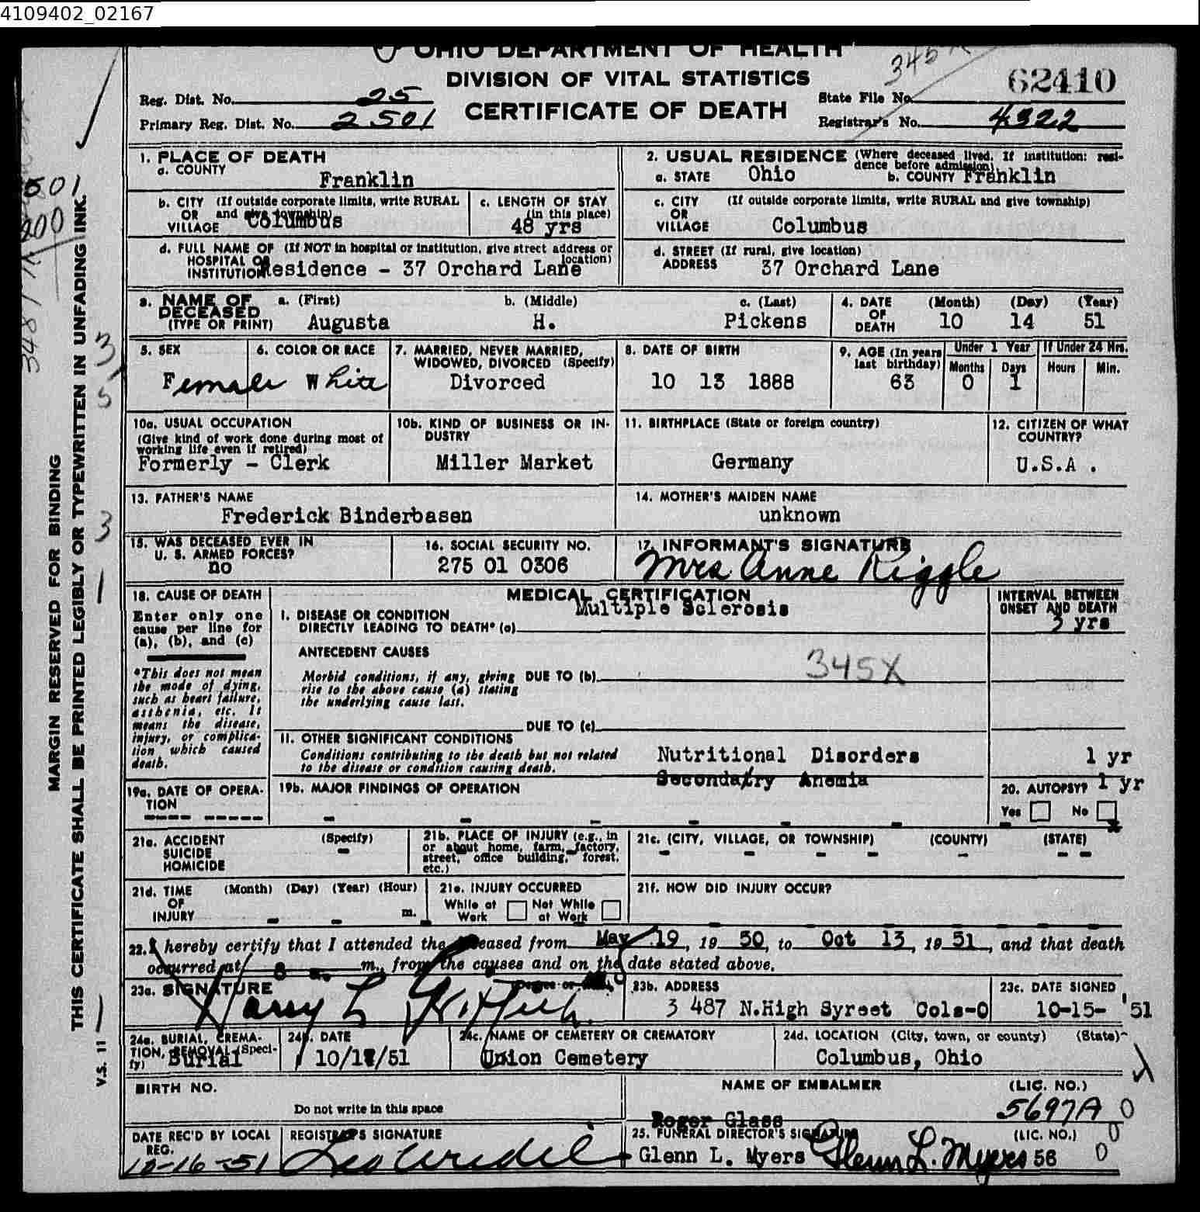 4109402_02167
OHIO DEPARTMENT OF HEALTH
DIVISION OF VITAL STATISTICS
CERTIFICATE OF DEATH
Reg. Dist. No. 25
Primary Reg. Dist. No. 2501
State File No. 62410
Registrar's No. 4322
MARGIN RESERVED FOR BINDING
THIS CERTIFICATE SHALL BE PRINTED LEGIBLY OR TYPEWRITTEN IN UNFADING INK.
V.S. 11
1. PLACE OF DEATH
a. COUNTY Franklin
2. USUAL RESIDENCE (Where deceased lived. If institution: residence before admission)
a. STATE Ohio b. COUNTY Franklin
b. CITY (If outside corporate limits, write RURAL
OR and give township)
VILLAGE Columbus
c. LENGTH OF STAY
(in this place)
48 yrs
c. CITY (If outside corporate limits, write RURAL and give township)
OR
VILLAGE Columbus
d. FULL NAME OF (If NOT in hospital or institution, give street address or location)
HOSPITAL OR
INSTITUTION Residence - 37 Orchard Lane
d. STREET (If rural, give location)
ADDRESS 37 Orchard Lane
3. NAME OF DECEASED
(TYPE OR PRINT)
a. (First) b. (Middle) c. (Last)
Augusta H. Pickens
4. DATE OF DEATH (Month) (Day) (Year)
10 14 51
5. SEX
Female
6. COLOR OR RACE
White
7. MARRIED, NEVER MARRIED,
WIDOWED, DIVORCED (Specify)
Divorced
8. DATE OF BIRTH
10 13 1888
9. AGE (In years
last birthday)
63
Under 1 Year If Under 24 Hrs.
Months Days Hours Min.
0 1
10a. USUAL OCCUPATION
(Give kind of work done during most of
working life even if retired)
Formerly - Clerk
10b. KIND OF BUSINESS OR INDUSTRY
Miller Market
11. BIRTHPLACE (State or foreign country)
Germany
12. CITIZEN OF WHAT
COUNTRY?
U.S.A .
13. FATHER'S NAME
Frederick Binderbasen
14. MOTHER'S MAIDEN NAME
unknown
15. WAS DECEASED EVER IN
U. S. ARMED FORCES?
no
16. SOCIAL SECURITY NO.
275 01 0306
17. INFORMANT'S SIGNATURE
Mrs Anne Riggle
18. CAUSE OF DEATH
Enter only one
cause per line for
(a), (b), and (c)
*This does not mean
the mode of dying,
such as heart failure,
asthenia, etc. It
means the disease,
injury, or complication
which caused
death.
MEDICAL CERTIFICATION
INTERVAL BETWEEN
ONSET AND DEATH
I. DISEASE OR CONDITION
DIRECTLY LEADING TO DEATH* (a) Multiple Sclerosis
yrs
ANTECEDENT CAUSES
Morbid conditions, if any, giving DUE TO (b)
rise to the above cause (a) stating
the underlying cause last.
345X
DUE TO (c)
II. OTHER SIGNIFICANT CONDITIONS
Conditions contributing to the death but not related
to the disease or condition causing death.
Nutritional Disorders 1 yr
Secondary Anemia 1 yr
19a. DATE OF OPERATION
19b. MAJOR FINDINGS OF OPERATION
20. AUTOPSY?
Yes No x
21a. ACCIDENT (Specify)
SUICIDE
HOMICIDE
21b. PLACE OF INJURY (e.g., in
or about home, farm, factory,
street, office building, forest,
etc.)
21c. (CITY, VILLAGE, OR TOWNSHIP) (COUNTY) (STATE)
21d. TIME (Month) (Day) (Year) (Hour)
OF
INJURY m.
21e. INJURY OCCURRED
While at Work Not While at Work
21f. HOW DID INJURY OCCUR?
22. I hereby certify that I attended the deceased from May 19, 1950, to Oct 13, 1951, and that death
occurred at 8 a. m., from the causes and on the date stated above.
23a. SIGNATURE
Harry L
23b. ADDRESS
3 487 N.High Syreet Cols-O
23c. DATE SIGNED
10-15- '51
24a. BURIAL, CREMATION, REMOVAL (Specify)
Burial
24b. DATE
24c. NAME OF CEMETERY OR CREMATORY
Union Cemetery
24d. LOCATION (City, town, or county) (State)
Columbus, Ohio
BIRTH NO.
Do not write in this space
NAME OF EMBALMER (LIC. NO.)
Roger Glass 5697A
DATE REC'D BY LOCAL
REG.
10-16-51
REGISTRAR'S SIGNATURE
25. FUNERAL DIRECTOR'S SIGNATURE (LIC. NO.)
Glenn L. Myers Glenn L. Myers 56